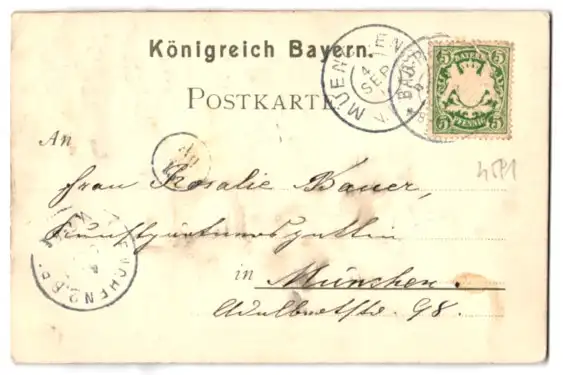 Königreich Bayern.
MUENCHEN
4 SEP
BAYERN
5 5
PFENNIG
POSTKARTE
An
4571
Frau Rosalie Bauer,
Kunstgärtnersgattin
in München.
MÜNCHEN 2. B.P.
Adalbertstr. 98.